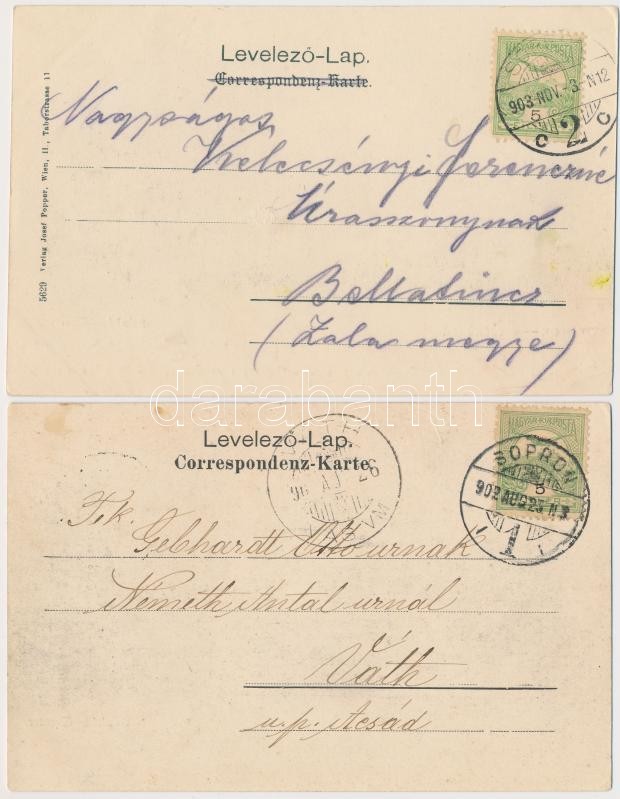 Levelező-Lap.
Correspondenz-Karte.
MAGYAR KIR. POSTA
903 NOV.-3.-N12
5
C 2 C
Nagyságos
Kelecsényi Ferenczné
Uraszonynak
Bellatincz
(Zala megye)
5629 Verlag Josef Popper, Wien, II., Taborstrasse 11
darabanth
Levelező-Lap.
Correspondenz-Karte.
MAGYAR KIR. POSTA
SOPRON
903 AUG 25 N 3
5
1
26
VAS VM
Gebhardt Ottó urnak
Németh Antal urnál
Váth
u.p. Acsád